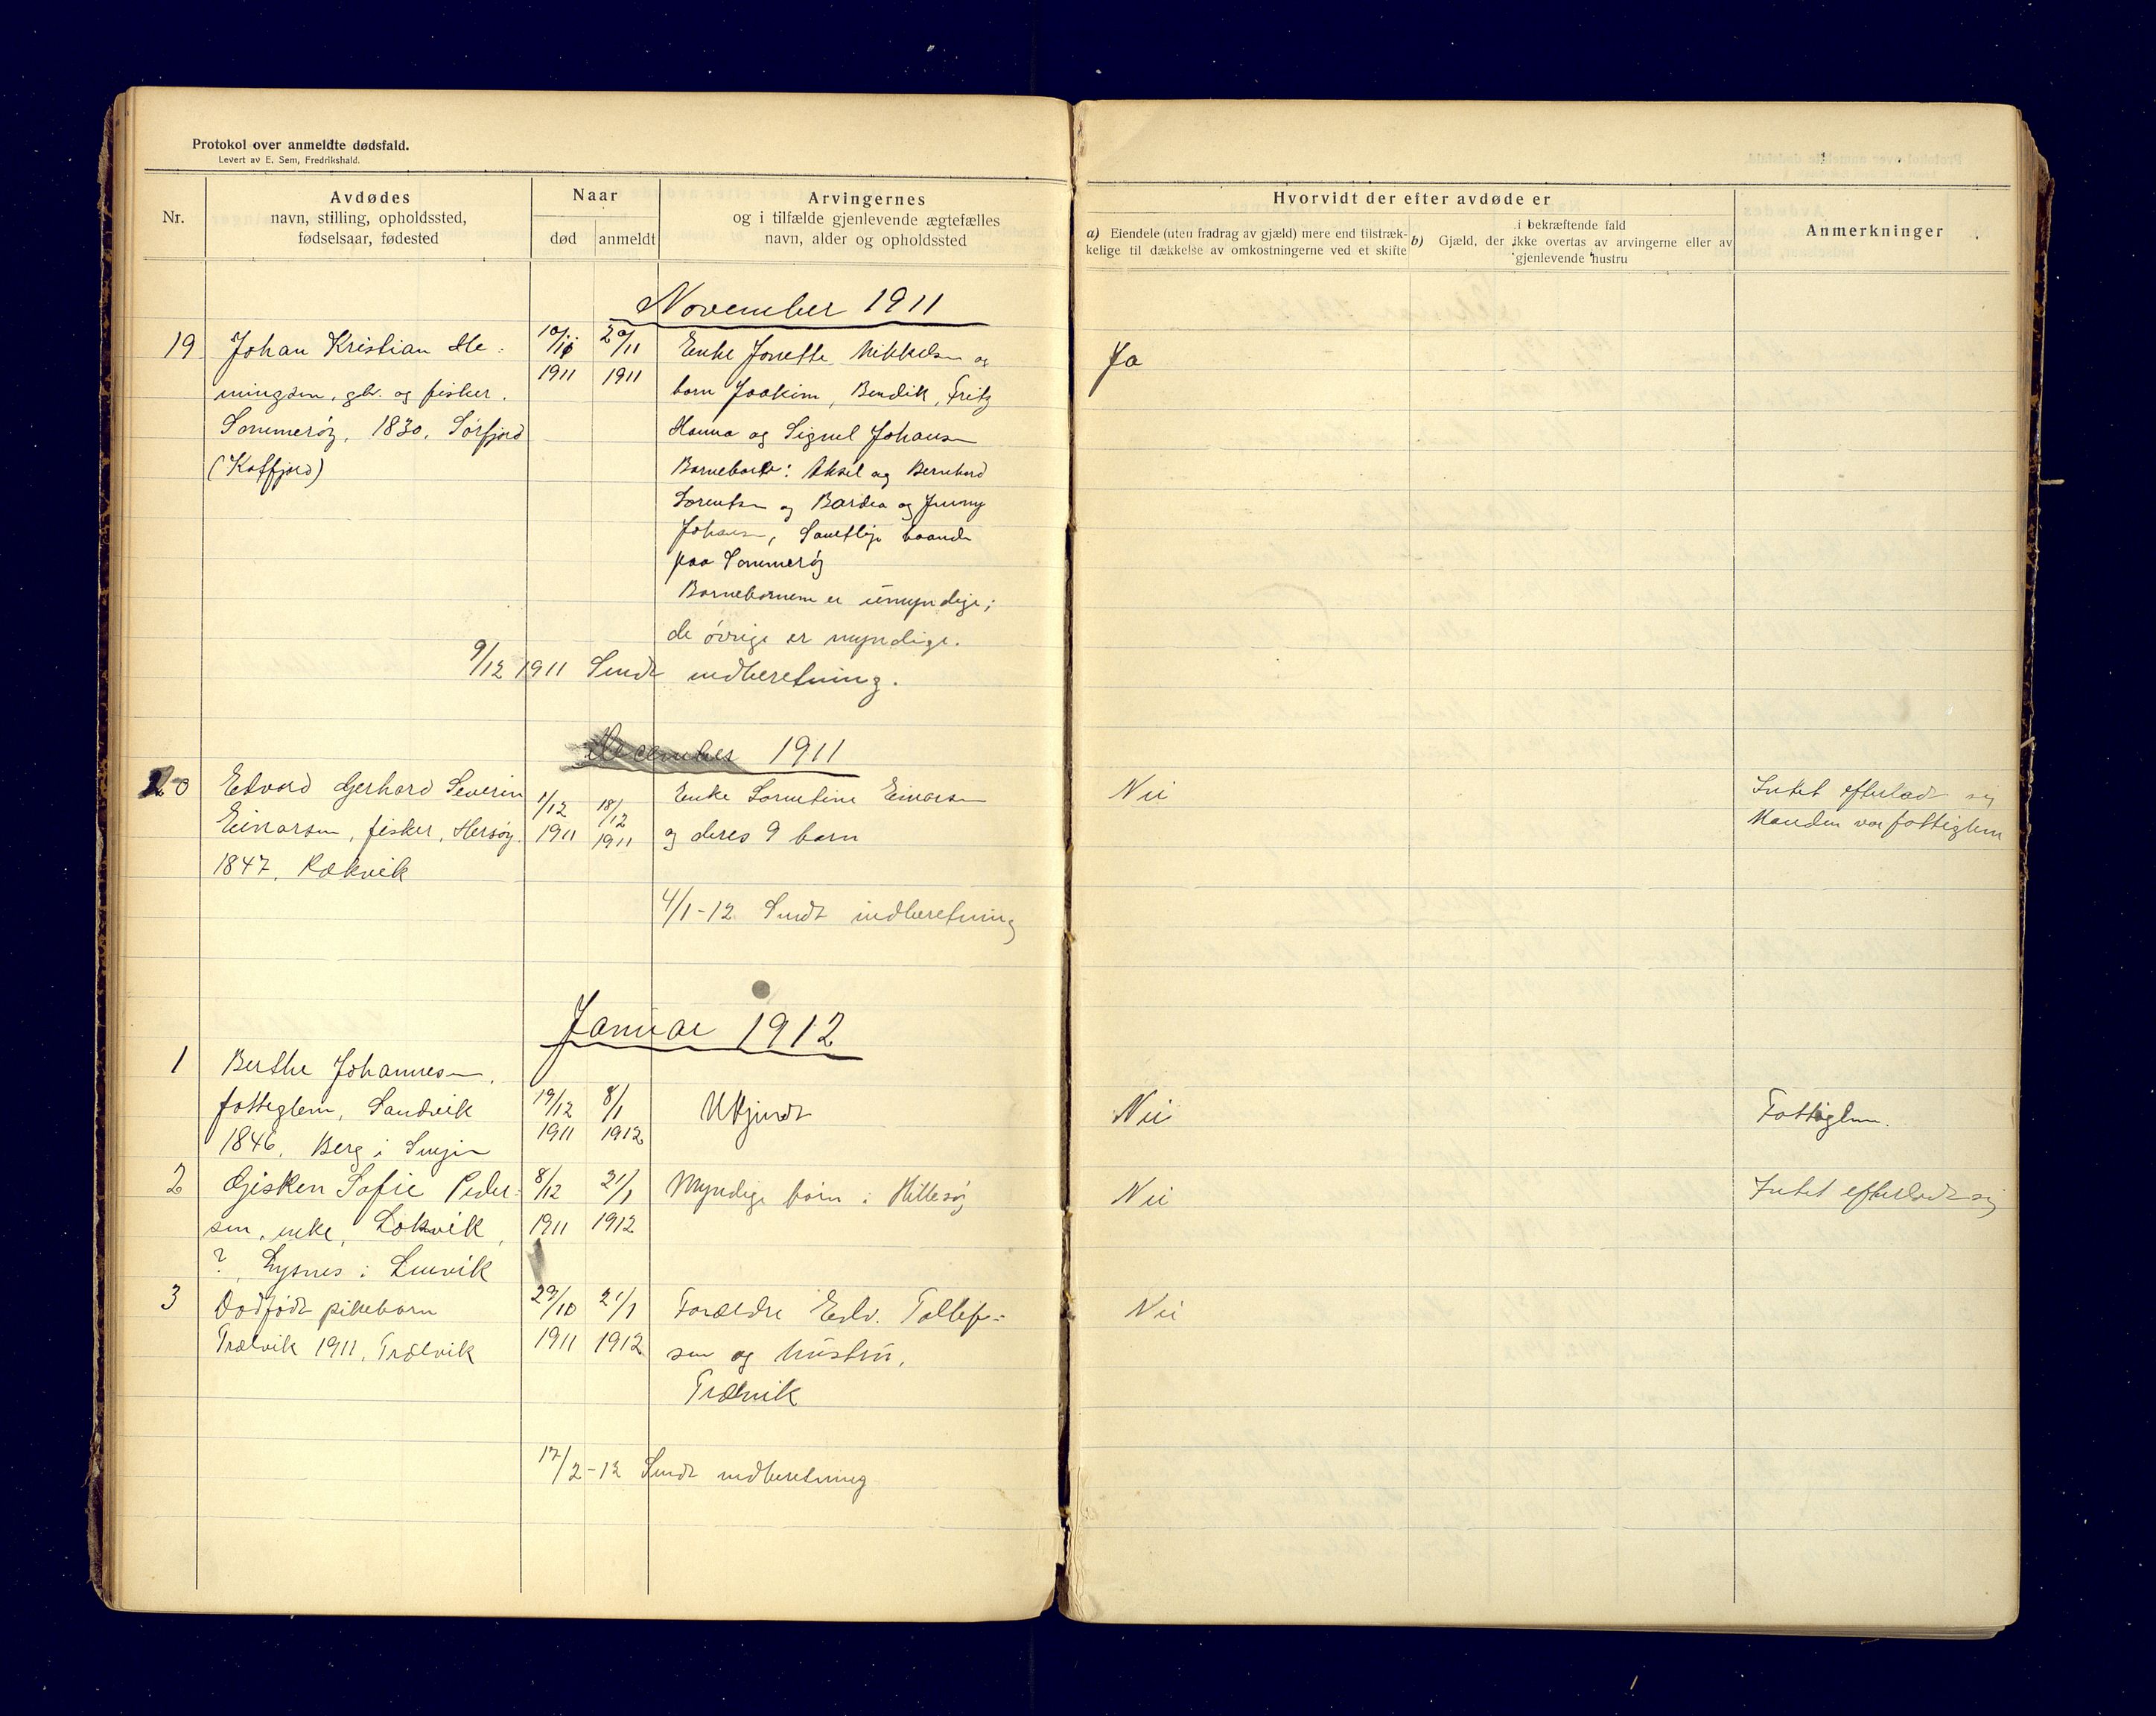 Protokol over anmeldte dødsfald.
Levert av E. Sem, Fredrikshald.
Nr.
Avdødes
navn, stilling, opholdssted,
fødselsaar, fødested
Naar
død
anmeldt
Arvingernes
og i tilfælde gjenlevende ægtefælles
navn, alder og opholdssted
Hvorvidt der efter avdøde er
a) Eiendele (uten fradrag av gjæld) mere end tilstræk-
kelige til dækkelse av omkostningerne ved et skifte
i bekræftende fald
b) Gjæld, der ikke overtas av arvingerne eller av
gjenlevende hustru
Anmerkninger
November 1911
19
Johan Kristian He-
mingsen, gbr. og fisker.
Sommerøy, 1830, Sørfjord
(Kaffjord)
10/11
1911
20/11
1911
Enke Jonette Mikkelsen og
børn Joakim, Bendik, Fritz
Hanna og Signel Johansen
Barnebarn: Aksel og Bernhard
Lorentsen og Bardea og Jenny
Johansen, Samtlige boende
paa Sommerøy
Barnebarnene er umyndige;
de øvrige er myndige.
Ja
9/12 1911 Sendt indberetning.
December 1911
20
Edvard Gerhard Severin
Einarsen, fisker, Hersøy.
1847, Rækvik
1/12
1911
18/12
1911
Enke Lorentine Einarsen
og deres 9 barn
Nei
Intet efterladt sig
Manden var fattiglem
4/1-12 Sendt indberetning
Januar 1912
1
Berthe Johannesen,
fattiglem, Sandvik
1846, Berg i Senjen
19/12
1911
8/1
1912
Ukjendt
Nei
Fattiglem.
2
Gjisken Sofie Peder-
sen, enke, Løkvik,
?, Lysnes i Lenvik
8/12
1911
21/1
1912
Myndige børn i Hillesøy
Nei
Intet efterladt sig
3
Dødfødt pikebarn
Trælvik 1911, Trælvik
29/10
1911
21/1
1912
Forældre Edv. Tollef-
sen og hustru,
Trælvik
Nei
17/2-12 Sendt indberetning